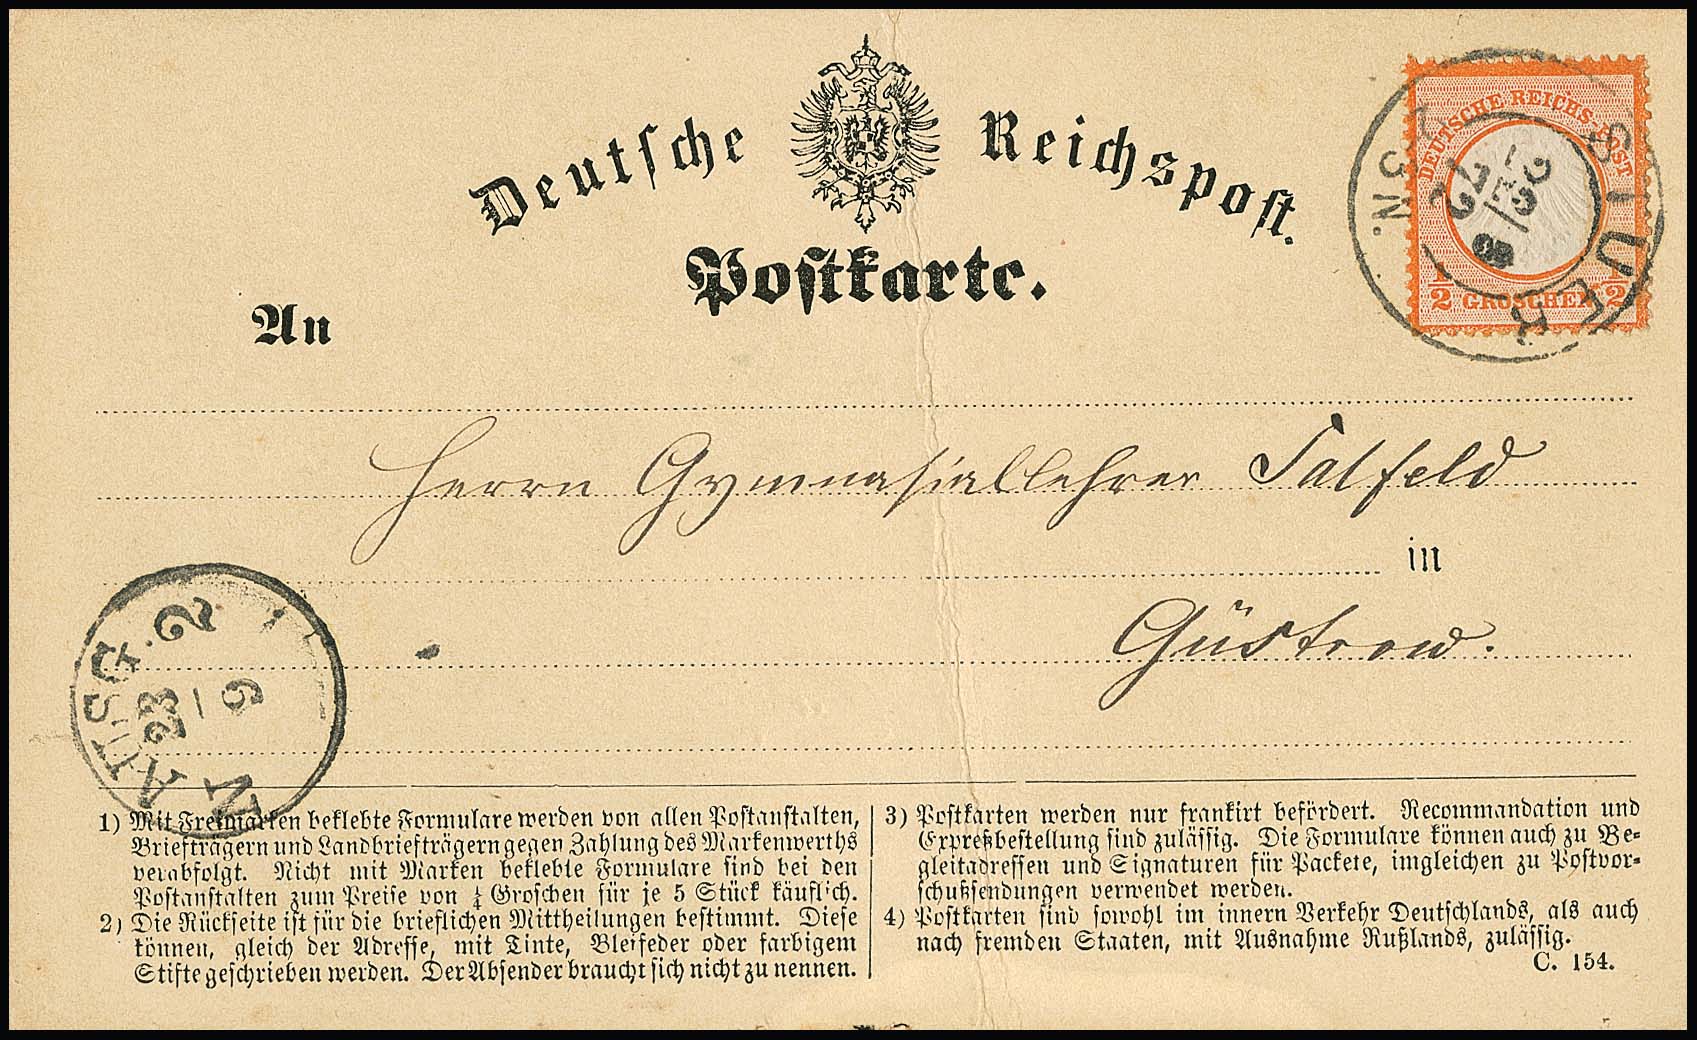 Deutsche Reichspost.
Postkarte.
DEUTSCHE REICHS-POST
1/2 GROSCHEN 1/2
23
9
72
3 N.
An
Herrn Gymnasiallehrer Salfeld
in
Güstrow.
AUSG. 2
23
9
N
1) Mit Freimarken beklebte Formulare werden von allen Postanstalten,
Briefträgern und Landbriefträgern gegen Zahlung des Markenwerths
verabfolgt. Nicht mit Marken beklebte Formulare sind bei den
Postanstalten zum Preise von ¼ Groschen für je 5 Stück käuflich.
2) Die Rückseite ist für die brieflichen Mittheilungen bestimmt. Diese
können, gleich der Adresse, mit Tinte, Bleifeder oder farbigem
Stifte geschrieben werden. Der Absender braucht sich nicht zu nennen.
3) Postkarten werden nur frankirt befördert. Recommandation und
Expreßbestellung sind zulässig. Die Formulare können auch zu Be-
gleitadressen und Signaturen für Packete, imgleichen zu Postvor-
schußsendungen verwendet werden.
4) Postkarten sind sowohl im innern Verkehr Deutschlands, als auch
nach fremden Staaten, mit Ausnahme Rußlands, zulässig.
C. 154.